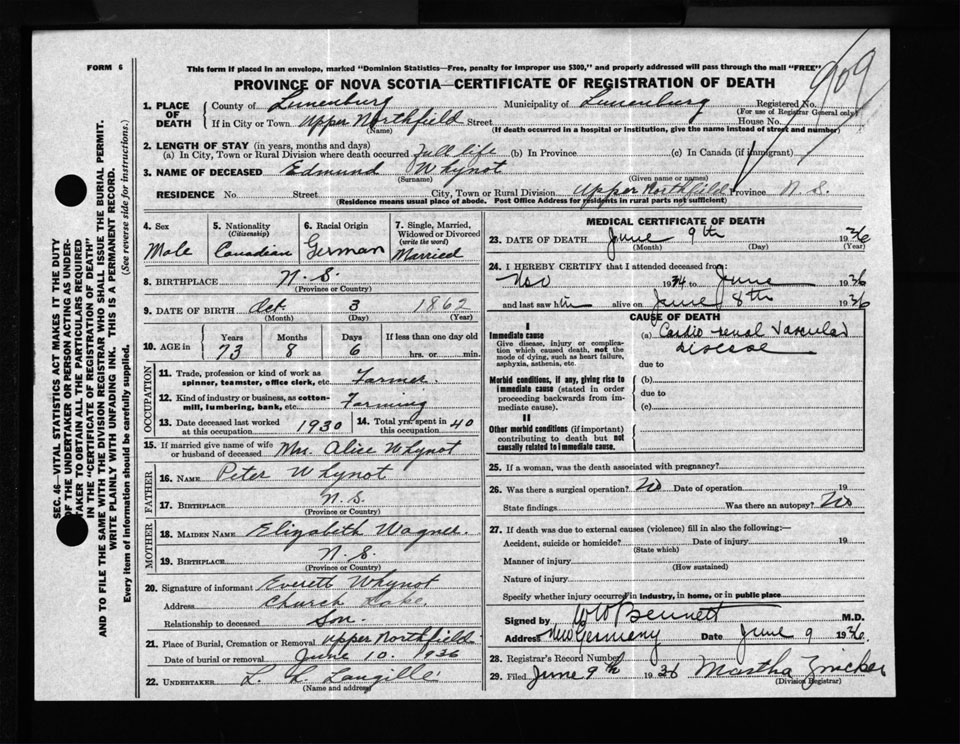 FORM 6
This form if placed in an envelope, marked "Dominion Statistics—Free, penalty for improper use $300," and properly addressed will pass through the mail "FREE"
PROVINCE OF NOVA SCOTIA—CERTIFICATE OF REGISTRATION OF DEATH
909
1. PLACE OF DEATH County of Lunenburg Municipality of Lunenburg Registered No.
(For use of Registrar General only)
If in City or Town Upper Northfield Street House No.
(Name) (If death occurred in a hospital or institution, give the name instead of street and number)
2. LENGTH OF STAY (in years, months and days)
(a) In City, Town or Rural Division where death occurred Full life (b) In Province (c) In Canada (if immigrant)
3. NAME OF DECEASED Edmund Whynot
(Surname) (Given name or names)
RESIDENCE No Street City, Town or Rural Division Upper Northfild Province N. S.
(Residence means usual place of abode. Post Office Address for residents in rural parts not sufficient)
4. Sex Male
5. Nationality (Citizenship) Canadian
6. Racial Origin German
7. Single, Married, Widowed or Divorced (write the word) Married
8. BIRTHPLACE N. S.
(Province or Country)
9. DATE OF BIRTH Oct. 3 1862
(Month) (Day) (Year)
10. AGE in Years 73 Months 8 Days 6 If less than one day old hrs. or min.
OCCUPATION
11. Trade, profession or kind of work as spinner, teamster, office clerk, etc. Farmer.
12. Kind of industry or business, as cotton-mill, lumbering, bank, etc. Farming
13. Date deceased last worked at this occupation 1930
14. Total yrs. spent in this occupation 40
15. If married give name of wife or husband of deceased Mrs. Alice Whynot
FATHER
16. NAME Peter Whynot
17. BIRTHPLACE N. S.
(Province or Country)
MOTHER
18. MAIDEN NAME Elizabeth Wagner.
19. BIRTHPLACE N. S.
(Province or Country)
20. Signature of informant Everett Whynot
Address Church Lake.
Relationship to deceased Son.
21. Place of Burial, Cremation or Removal Upper Northfield.
Date of burial or removal June 10. 1936
22. UNDERTAKER L. L. Langille
(Name and address)
MEDICAL CERTIFICATE OF DEATH
23. DATE OF DEATH June 9th 1936
(Month) (Day) (Year)
24. I HEREBY CERTIFY that I attended deceased from:
Nov 1934 to June 1936
and last saw him alive on June 8th 1936
CAUSE OF DEATH
I
Immediate cause
Give disease, injury or complication which caused death, not the mode of dying, such as heart failure, asphyxia, asthenia, etc.
(a) Cardio renal Vascular
disease
due to
Morbid conditions, if any, giving rise to immediate cause (stated in order proceeding backwards from immediate cause).
(b)
due to
(c)
II
Other morbid conditions (if important) contributing to death but not causally related to immediate cause.
25. If a woman, was the death associated with pregnancy?
26. Was there a surgical operation? No Date of operation 19
State findings Was there an autopsy? No
27. If death was due to external causes (violence) fill in also the following:—
Accident, suicide or homicide? Date of injury 19
(State which)
Manner of injury
(How sustained)
Nature of injury
Specify whether injury occurred in industry, in home, or in public place
Signed by W W Bennett M.D.
Address New Germany Date June 9 1936.
28. Registrar's Record Number
29. Filed June 9th 1936 Martha Zwicker
(Division Registrar)
SEC. 46—VITAL STATISTICS ACT MAKES IT THE DUTY
OF THE UNDERTAKER OR PERSON ACTING AS UNDER-
TAKER TO OBTAIN ALL THE PARTICULARS REQUIRED
IN THE "CERTIFICATE OF REGISTRATION OF DEATH"
AND TO FILE THE SAME WITH THE DIVISION REGISTRAR WHO SHALL ISSUE THE BURIAL PERMIT.
WRITE PLAINLY WITH UNFADING INK. THIS IS A PERMANENT RECORD.
Every item of information should be carefully supplied. (See reverse side for instructions.)